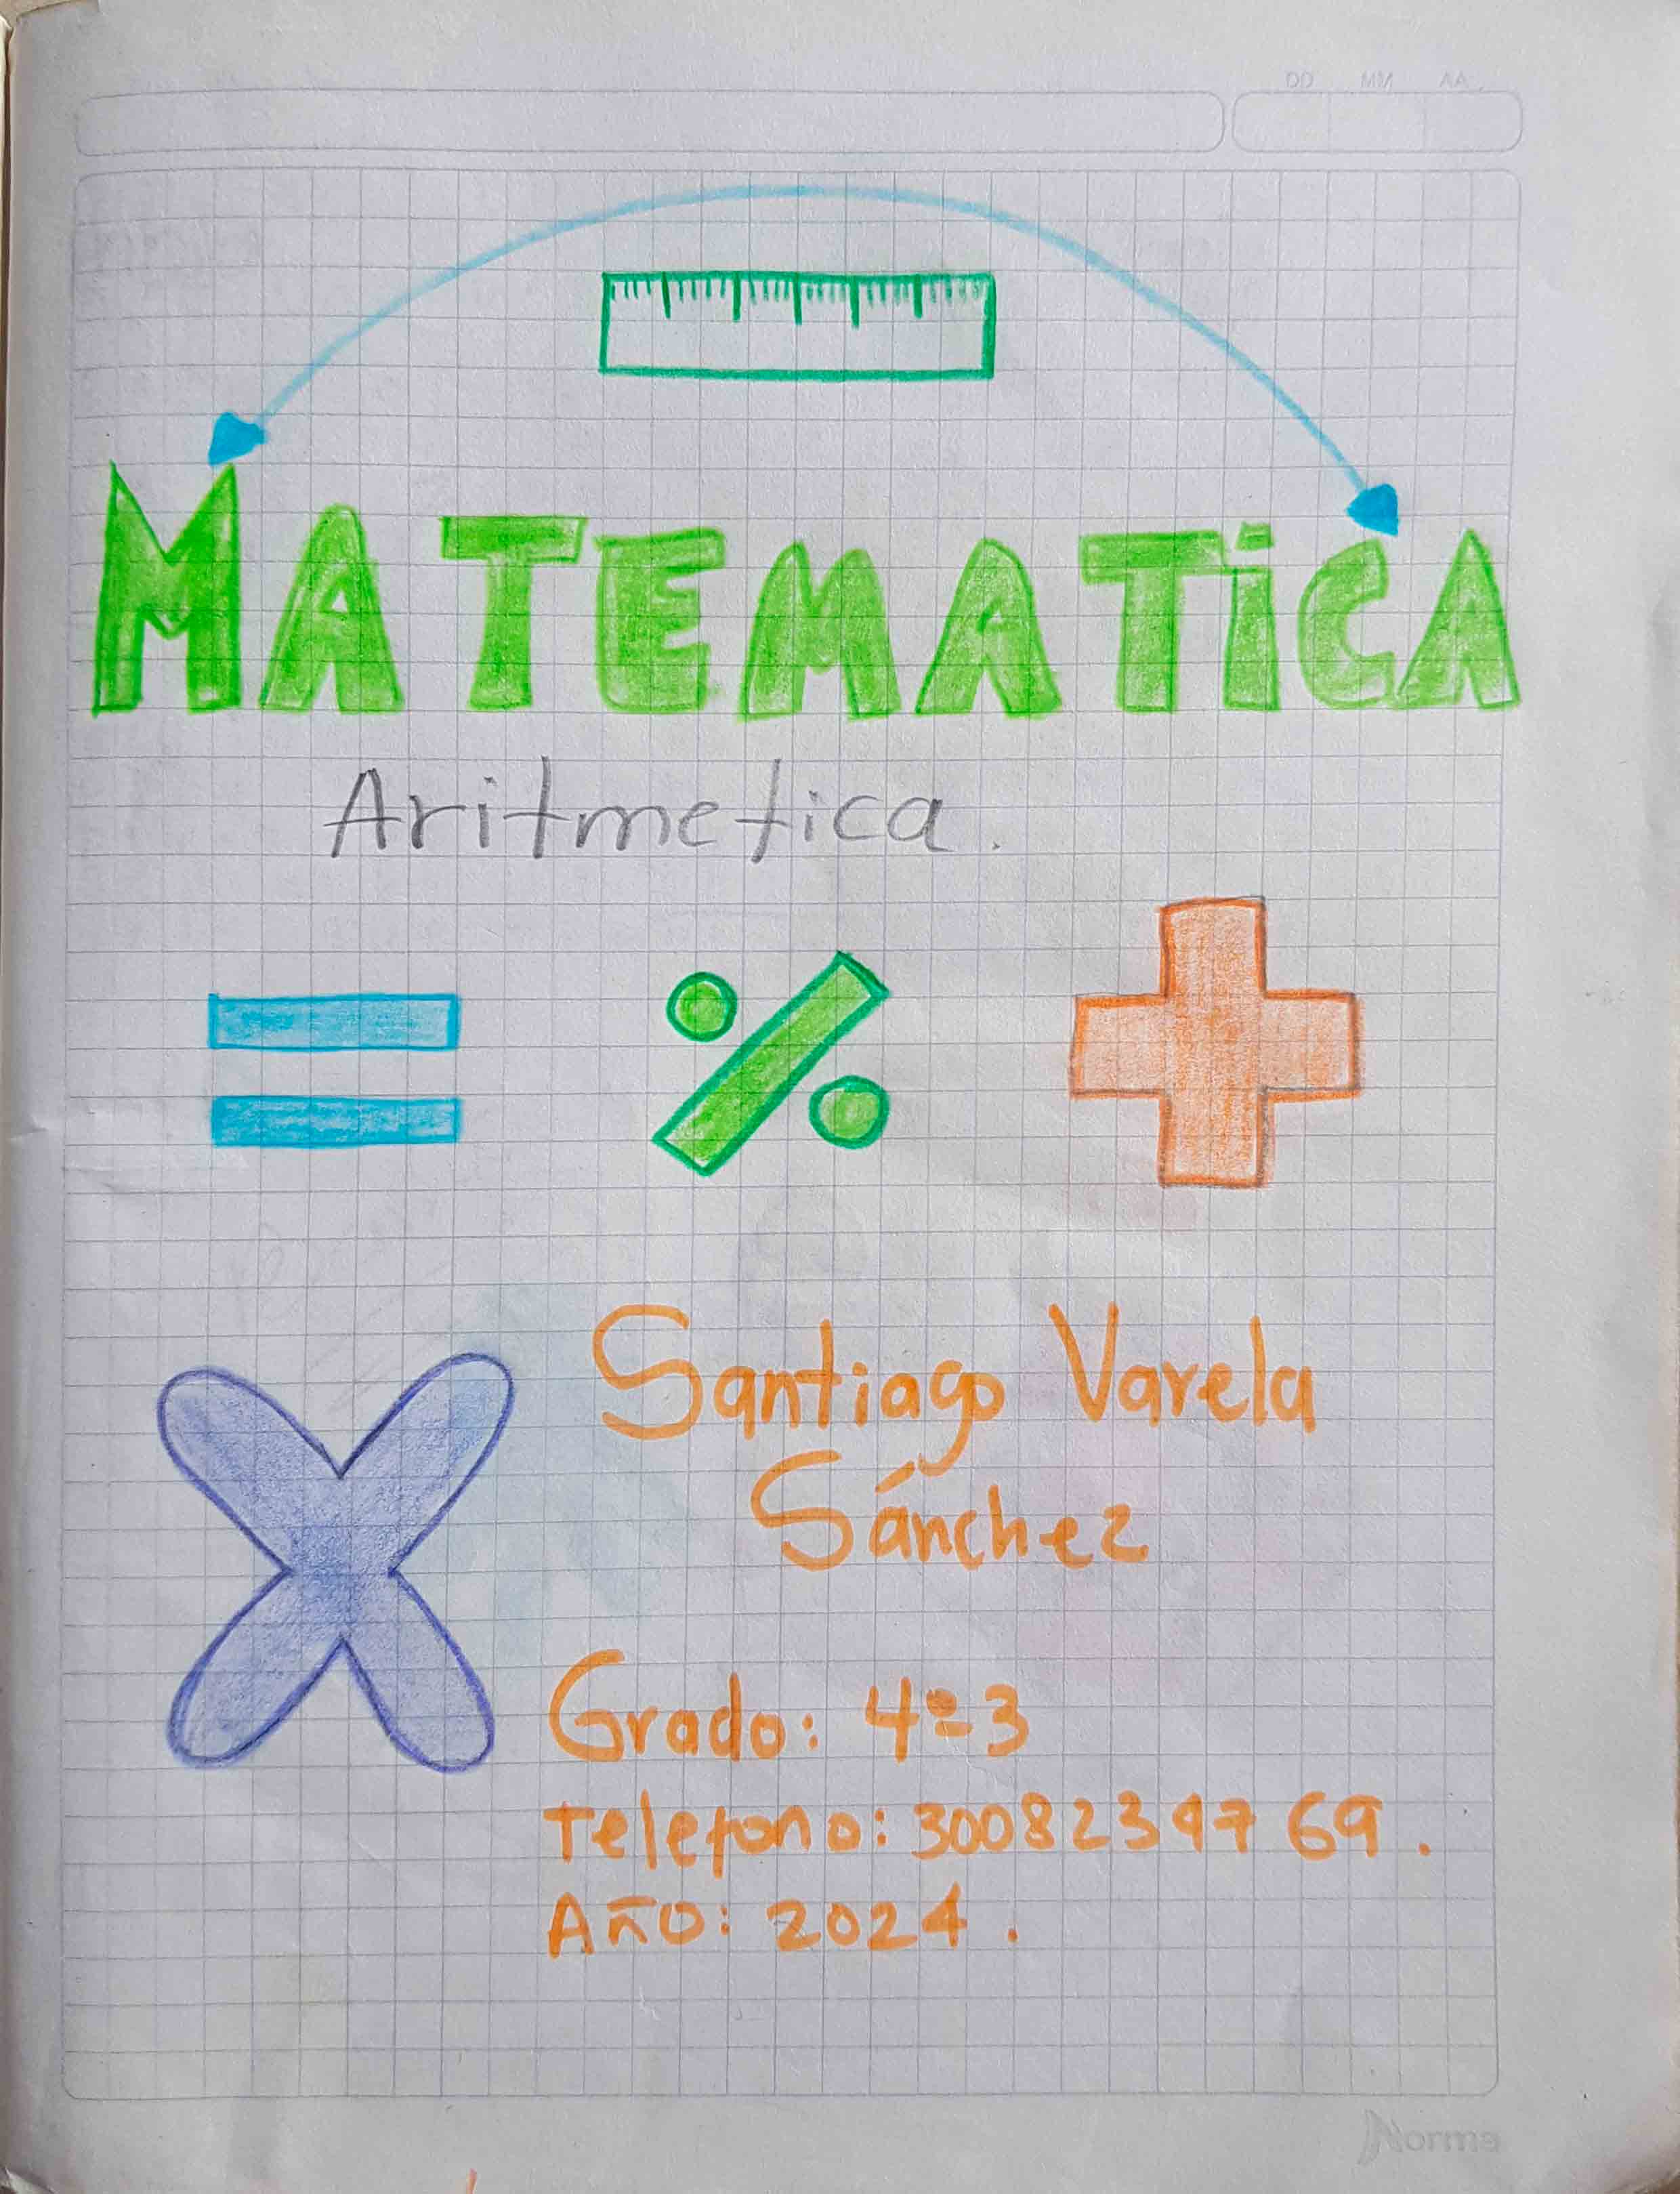 DD MM AA
MATEMATiCA
Aritmetica.
= % +
X
Santiago Varela
Sánchez
Grado: 4°-3
Telefono: 3008239769.
Año: 2024.
Norma